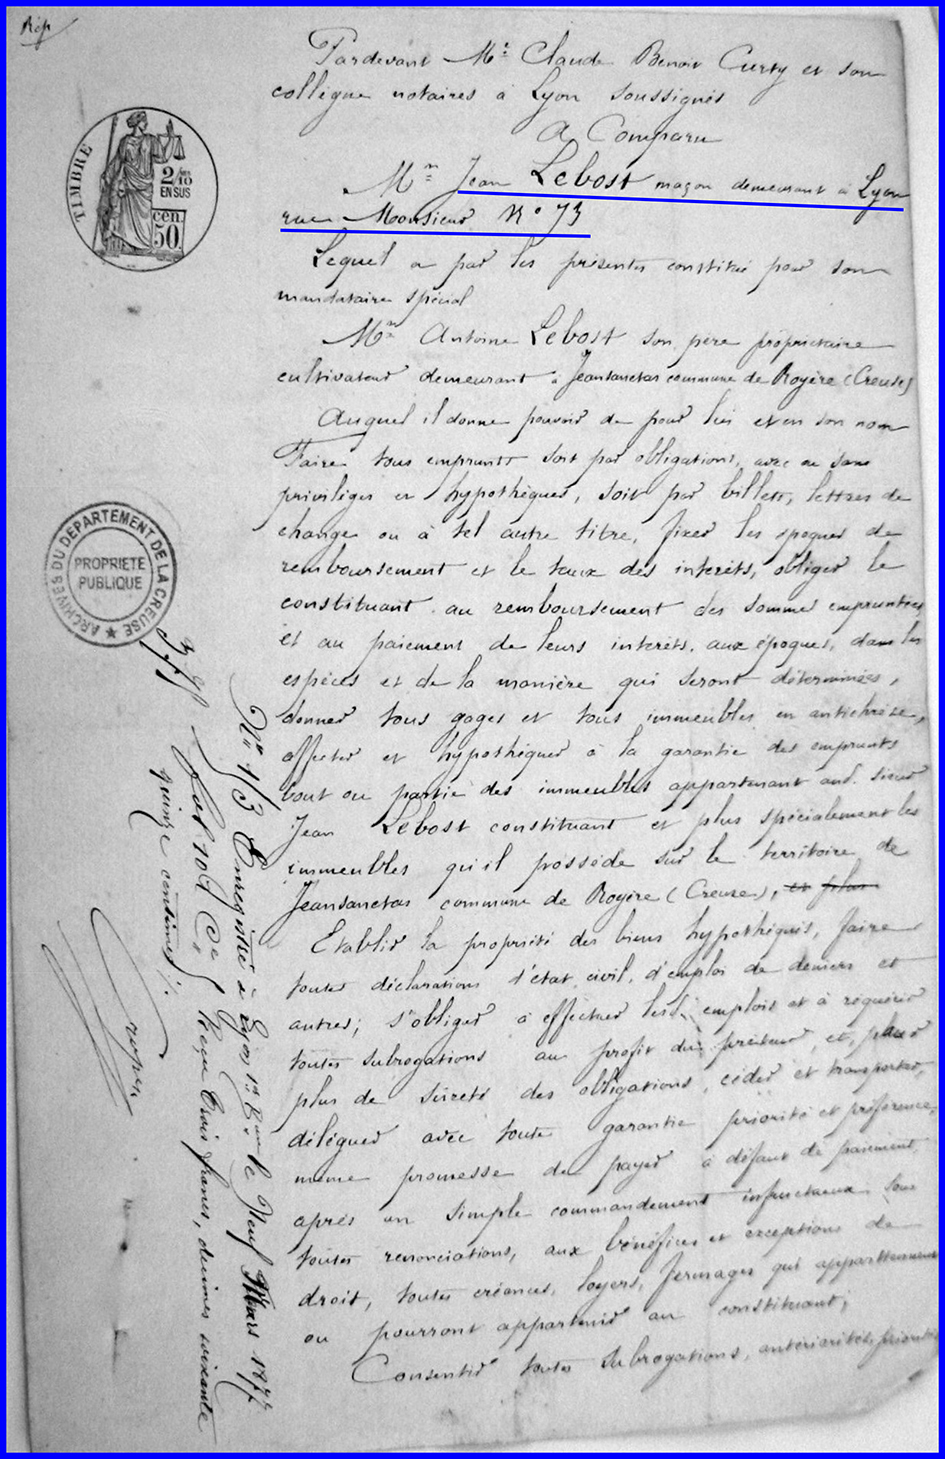 Rép
Pardevant Me Claude Benoit Curty et son
collègue notaires à Lyon soussignés
A Comparu
Mr Jean Lebost maçon demeurant à Lyon
rue Monsieur N° 73
Lequel a par les présentes constitué pour son
mandataire spécial
Mr Antoine Lebost son père propriétaire
cultivateur demeurant à Jeansanetas commune de Royère (Creuse)
Auquel il donne pouvoir de pour lui et en son nom
Faire tous emprunts soit par obligations, avec ou sans
privilèges et hypothèques, soit par billets, lettres de
change ou à tel autre titre, fixer les époques de
remboursement et le taux des intérêts, obliger le
constituant au remboursement des sommes empruntées
et au paiement de leurs intérêts, aux époques, dans les
espèces et de la manière qui seront déterminées,
donner tous gages et tous immeubles en antichrèse,
affecter et hypothéquer à la garantie des emprunts
tout ou partie des immeubles appartenant aud. sieur
Jean Lebost constituant et plus spécialement les
immeubles qu'il possède sur le territoire de
Jeansanetas commune de Royère (Creuse), et plus
Etablir la propriété des biens hypothéqués, faire
toutes déclarations d'état civil, d'emploi de deniers et
autres; s'obliger à effectuer les emplois et à requérir
toutes subrogations au profit du prêteur, et, pour
plus de sûreté des obligations, céder et transporter,
déléguer avec toute garantie priorité et préférence,
même promesse de payer à défaut de paiement
après un simple commandement infructueux, sous
toutes renonciations, aux bénéfices et exceptions de
droit, toutes créances, loyers, fermages qui appartiennent
ou pourront appartenir au constituant;
Consentir toutes subrogations, antériorités, priorités
TIMBRE
2/10
EN SUS
cen
50
ARCHIVES DU DEPARTEMENT DE LA CREUSE
PROPRIETE
PUBLIQUE
N° 1/3 Enregistré à Lyon le Neuf Mars 1877
fol 109 Ce Reçu trois francs, décimes soixante
quinze centimes